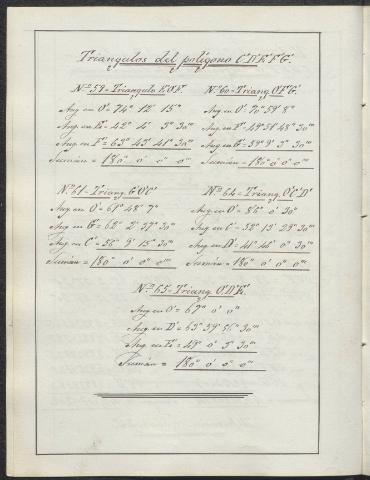 Triangulos del polígono C'D'E'F'G'.
Nº 59 = Triangulo E'O'F'
Ang en O' = 74° 12' 15"
Ang en E' = 42° 4' 3" 30'''
Ang en F' = 63° 43' 41" 30'''
Sumán = 180° 0' 0" 0'''
Nº 60 = Triang O'F'G'
Ang en O' 70° 58' 8"
Ang en F' 49° 58' 48" 30'''
Ang en G' = 59° 3' 3" 30'''
Sumán = 180° 0' 0" 0'''
Nº 61 = Triang. G'O'C'
Ang en O' = 61° 48' 7"
Ang en G' = 62° 2' 37" 30'''
Ang en C' = 56° 9' 15" 30'''
Sumán = 180° 0' 0" 0'''
Nº 64 = Triang. O'C'D'
Ang en O' = 86° 0' 30"
Ang en C' = 52° 13' 29" 30'''
Ang en D' = 41° 46' 0" 30'''
Sumán = 180° 0' 0" 0'''
Nº 65 = Triang O'D'E'.
Ang en O' = 67° 0' 0"
Ang en D' = 63° 59' 56" 30'''
Ang en E' = 49° 0' 3" 30'''
Sumán = 180° 0' 0" 0'''